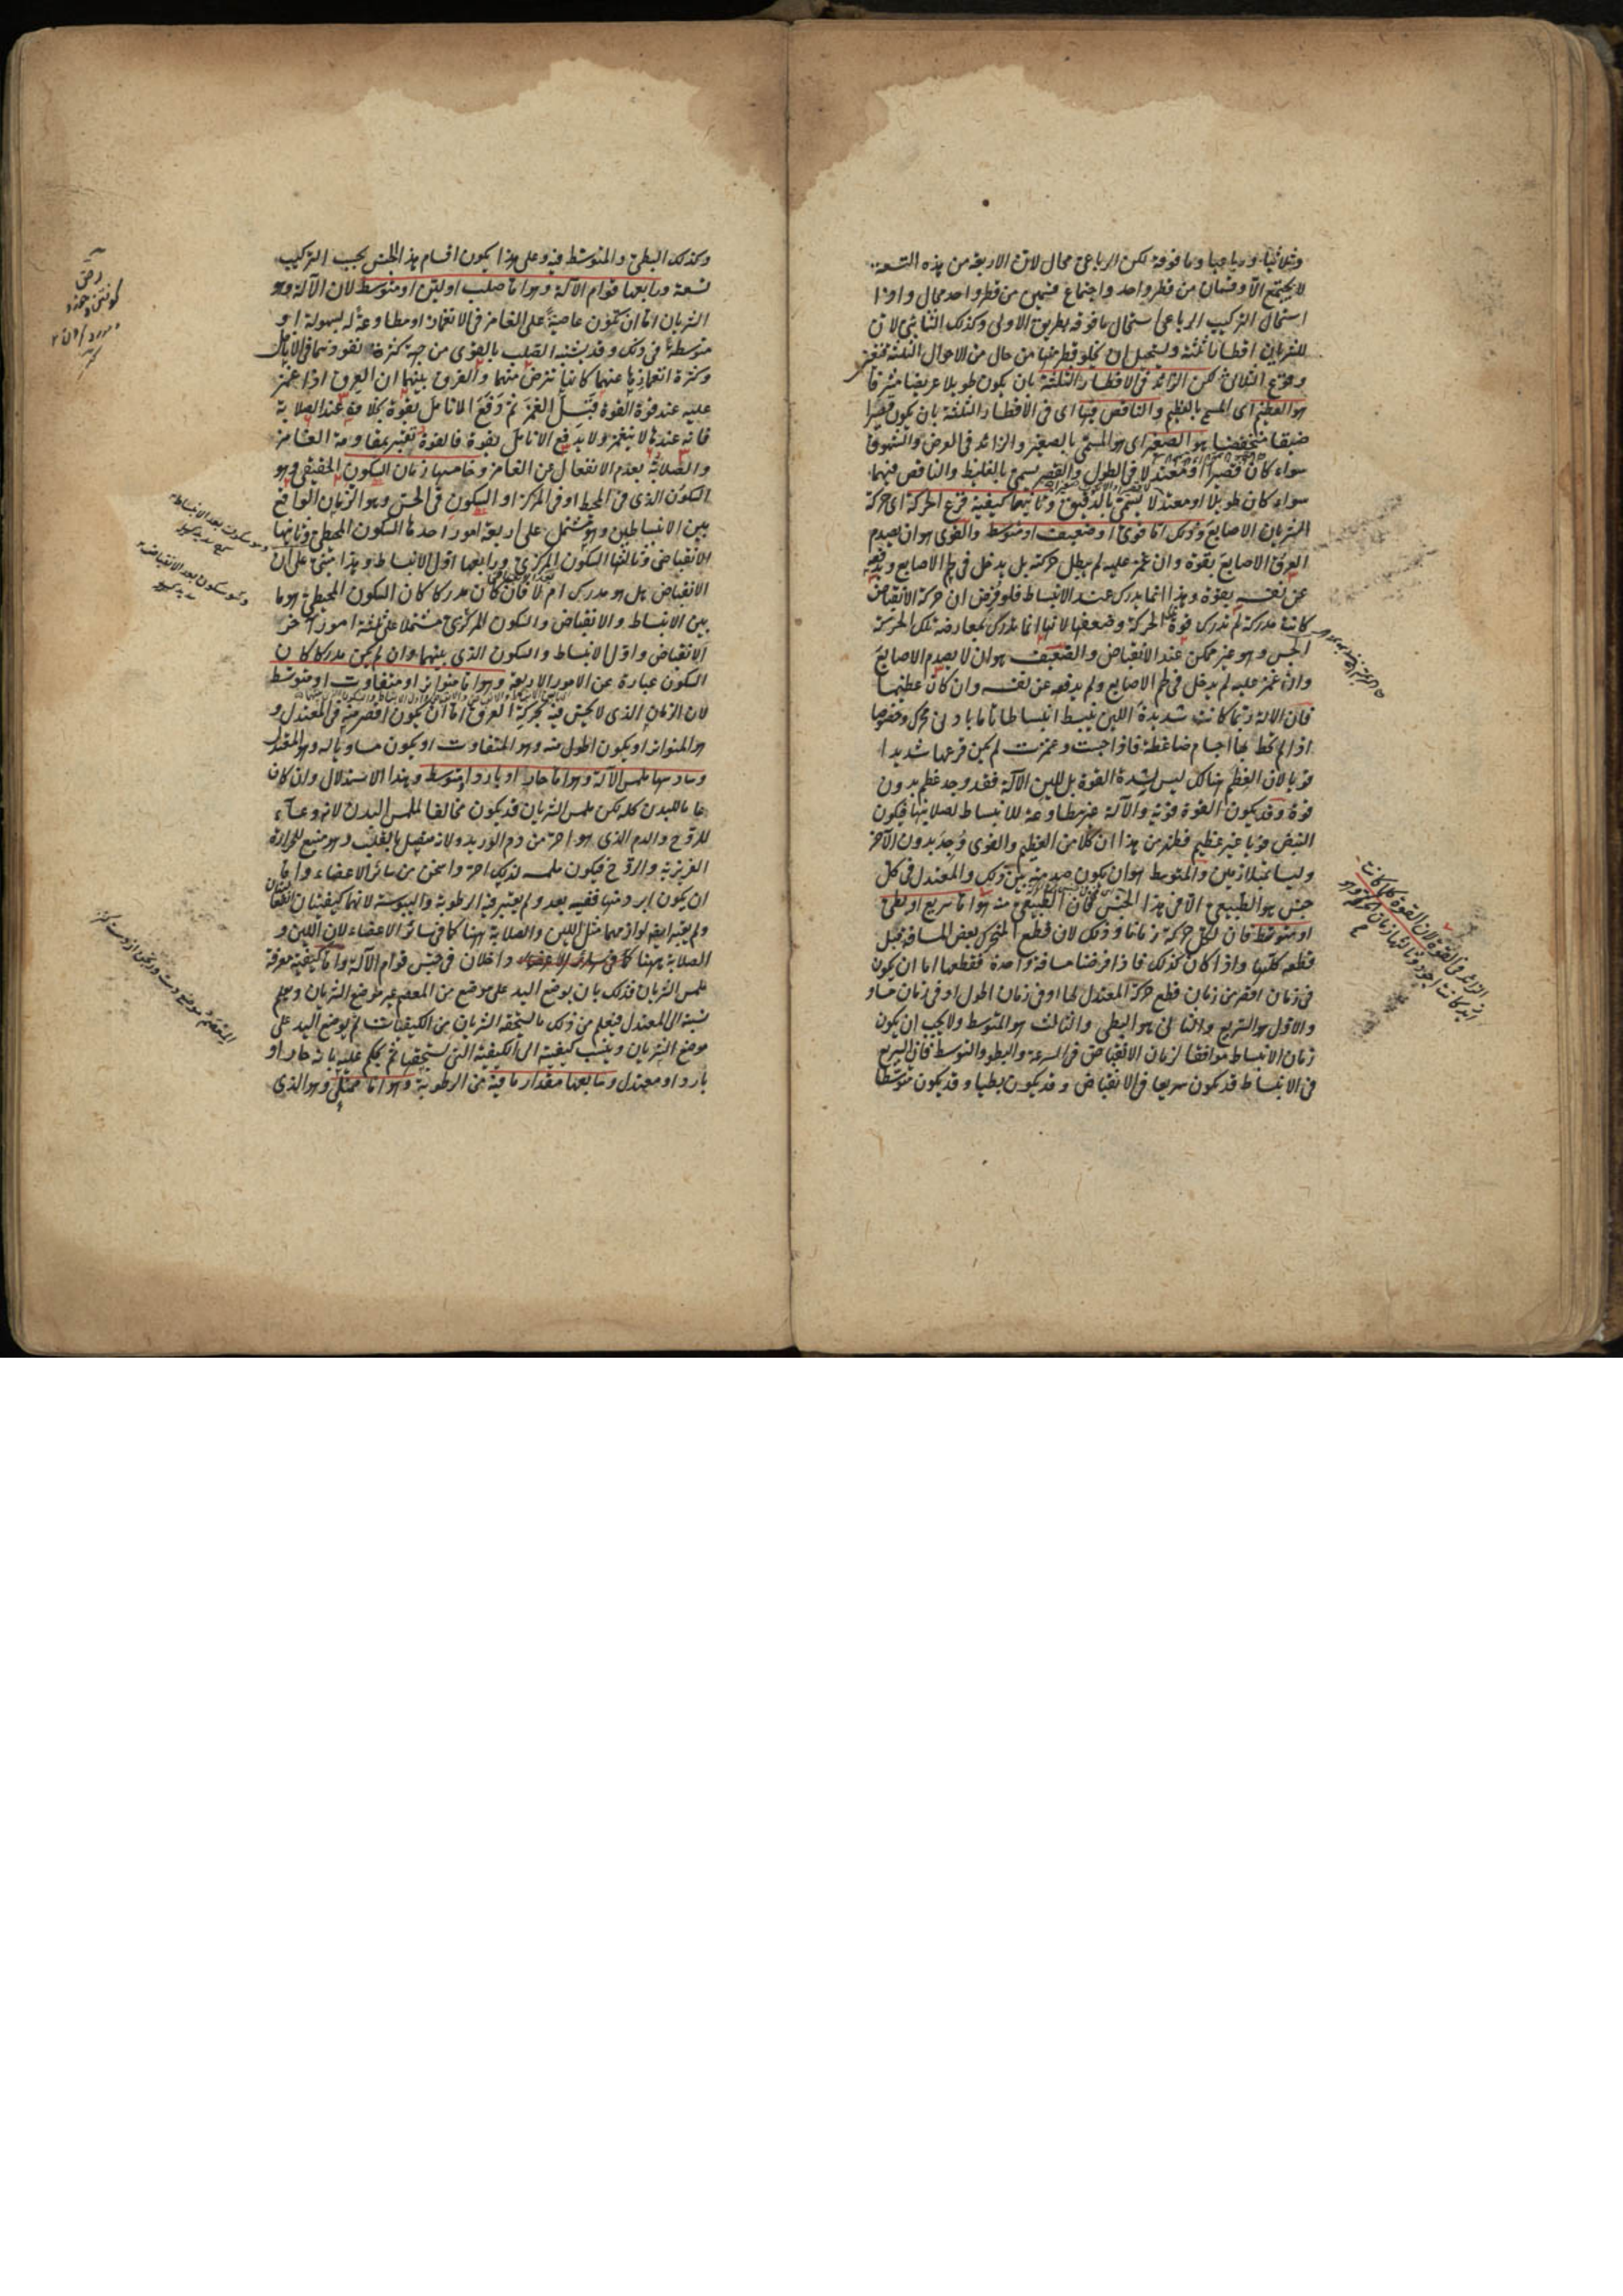 وثلاثيا ورباعيا وما فوقه لكن الرباعى محال لان الاربعة من هذه التسعة
لا يجتمع الا وقسمان من قطر واحد واجتماع قسمين من قطر واحد محال واذا
استحال التركيب الرباعى استحال ما فوقه بطريق الاولى وكذلك الثنائى لان
للشريان اقطارا ثلثة ويستحيل ان يخلو قطر منها من حال من الاحوال الثلثة
وقوع الثلاثى لكن الزائد فى الاقطار الثلثة بان يكون طويلا عريضا مشرفا
هو العظيم اى المسمى بالعظيم والناقص فيها اى فى الاقطار الثلثة بان يكون قصيرا
ضيقا منخفضا هو الصغير اى هو المسمى بالصغير والزائد فى العرض والشهوق
سواء كان قصيرا او معتدلا فى الطول والقصر يسمى بالغليظ والناقص فيهما
سواء كان طويلا او معتدلا يسمى بالدقيق وثانيها كيفية قرع الحركة اى حركة
الشريان الاصابع وذلك اما قوى او ضعيف او متوسط والقوى هو ان يصدم
العرق الاصابع بقوة وان غمز عليه لم يبطل حركته بل يدخل فى لحم الاصابع ويدفعه
عن نفسه بقوة وهذا انما يدرك عند الانبساط فلو فرض ان حركة الانقباض
كانت مدركة لم تدرك قوة الحركة وضعفها لانها انما تدرك بمعارضة تلك الحركة
الجس وهو غير ممكن عند الانقباض والضعيف هو ان لا يصدم الاصابع
وان غمز عليه لم يدخل فى لحم الاصابع ولم يدفعه عن نفسه وان كان عظيما
فان الالة ربما كانت شديدة اللين ينبسط انبساطا تاما بادنى محرك وخصوصا
اذا لم تحط بها اجسام ضاغطة فاذا جست وغمزت لم يكن قرعها شديدا
قويا لان العظم هنالك ليس لشدة القوة بل للين الآلة فقد وجد عظم بدون
قوة وقد يكون القوة قوية والآلة غير مطاوعة للانبساط لصلابتها فيكون
النبض قويا غير عظيم فظهر من هذا ان كلا من العظيم والقوى وجد بدون الآخر
وليسا بمتلازمين والمتوسط هو ان يكون صدمته بين ذلك والمعتدل فى كل
جنس هو الطبيعى الا فى هذا الجنس فان الطبيعى منه هو اما سريع او بطئ
او متوسط فان لكل حركة زمانا وذلك لان قطع المتحرك بعض المسافة قبل
قطعه كلها واذا كان كذلك فاذا فرضنا مسافة واحدة فقطعها اما ان يكون
فى زمان اقصر من زمان قطع حركة المعتدل لها او فى زمان اطول او فى زمان مساو
والاول هو السريع والثانى هو البطئ والثالث هو المتوسط ولا يجب ان يكون
زمان الانبساط موافقا لزمان الانقباض فى السرعة والبطؤ والتوسط فان السريع
فى الانبساط قد يكون سريعا فى الانقباض وقد يكون بطيا وقد يكون متوسطا
الزائد فى القوة لان القوة كلما كانت
وكذلك البطئ والمتوسط فيه وعلى هذا يكون اقسام هذا الجنس بحسب التركيب
تسعة ورابعها قوام الآلة وهو اما صلب او لين او متوسط لان الآلة وهو
الشريان اما ان تكون عاصية على الغامز فى الانغماز او مطاوعة له بسهولة او
متوسطة فى ذلك وقد يشتبه الصلب بالقوى من جهة كثرة نفوذهما فى الانامل
وكثرة انغمازها عنهما كانها تنرض منهما والفرق بينهما ان العرق اذا غمز
عليه عند قوة القوة قبل الغمز ثم دفع الانامل بقوة بخلافه عند الصلابة
فانه عندها لا ينغمز ولا يدفع الانامل بقوة فالقوة تعتبر بمقاومة الغامز
والصلابة بعدم الانفعال عن الغامز وخامسها زمان السكون الحقيقى وهو
السكون الذى فى المحيط او فى المركز او السكون فى الحس وهو الزمان الواقع
بين الانبساطين وهو يشتمل على اربعة امور احدها السكون المحيطى وثانيها
الانقباض وثالثها السكون المركزى ورابعها اول الانبساط وهذا مبنى على ان
الانقباض هل هو مدرك ام لا فان كان مدركا كان السكون المحيطى هو ما
بين الانبساط والانقباض والسكون المركزى مشتملا على ثلثة امور آخر
الانقباض واول الانبساط والسكون الذى بينهما وان لم يكن مدركا كان
السكون عبارة عن الامور الاربعة وهو اما متواتر او متفاوت او متوسط
لان الزمان الذى لا يحس فيه بحركة العرق اما ان يكون اقصر منه فى المعتدل و
هو المتواتر او يكون اطول منه وهو المتفاوت او يكون مساويا له وهو المعتدل
وسادسها ملمس الآلة وهو اما حار او بارد او متوسط وهذا الاستدلال وان كان
عاما للبدن كله لكن ملمس الشريان قد يكون مخالفا لملمس البدن لانه وعاء
للروح والدم الذى هو احر من دم الوريد ولانه متصل بالقلب وهو منبع للحرارة
الغريزية والروح فيكون ملمسه لذلك احر واسخن من سائر الاعضاء واما
ان يكون ابرد منها ففيه بعد ولم يعتبر فيه الرطوبة واليبوسة لانهما كيفيتان
ولم يعتبر ايضا لوازمهما مثل اللين والصلابة ههنا كما فى سائر الاعضاء لان اللين و
الصلابة ههنا داخلان فى جنس قوام الآلة واما كيفية معرفة
ملمس الشريان فذلك بان يوضع اليد على موضع من المعصم غير موضع الشريان ويعلم
نسبته الى المعتدل فيعلم من ذلك ما يستحقه الشريان من الكيفيات ثم يوضع اليد على
موضع الشريان وينسب كيفيته الى الكيفية التى يستحقها ثم يحكم عليه بانه حار او
بارد او معتدل وسابعها مقدار ما فيه من الرطوبة وهو اما ممتلئ وهو الذى
وهو سكون بعد الانبساط
وهو سكون بعد الانقباض